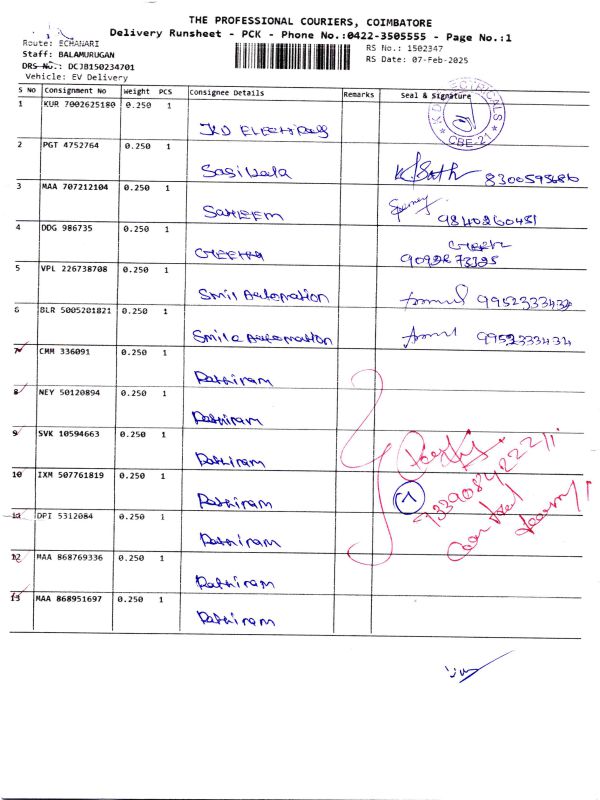 THE PROFESSIONAL COURIERS, COIMBATORE
Delivery Runsheet - PCK - Phone No.:0422-3505555 - Page No.:1
Route: ECHANARI
RS No.: 1502347
Staff: BALAMURUGAN
RS Date: 07-Feb-2025
DRS No.: DCJB150234701
Vehicle: EV Delivery
S No Consignment No Weight PCS Consignee Details Remarks Seal & Signature
1 KUR 7002625180 0.250 1
K D ELECTRICALS CBE-21
2 PGT 4752764 0.250 1
Sasikala 8300595686
3 MAA 707212104 0.250 1
SAHEEM 9840260451
4 DDG 986735 0.250 1
GEETHA
5 VPL 226738708 0.250 1
Smil Automation 9952333434
6 BLR 5005201821 0.250 1
Smile Automation 9952333434
7 CMM 336091 0.250 1
Pathiram
8 NEY 50120894 0.250 1
Pathiram
9 SVK 10594663 0.250 1
Pathiram
10 IXM 507761819 0.250 1
Pathiram
7
11 DPI 5312084 0.250 1
Pathiram
12 MAA 868769336 0.250 1
Pathiram
13 MAA 868951697 0.250 1
Pathiram